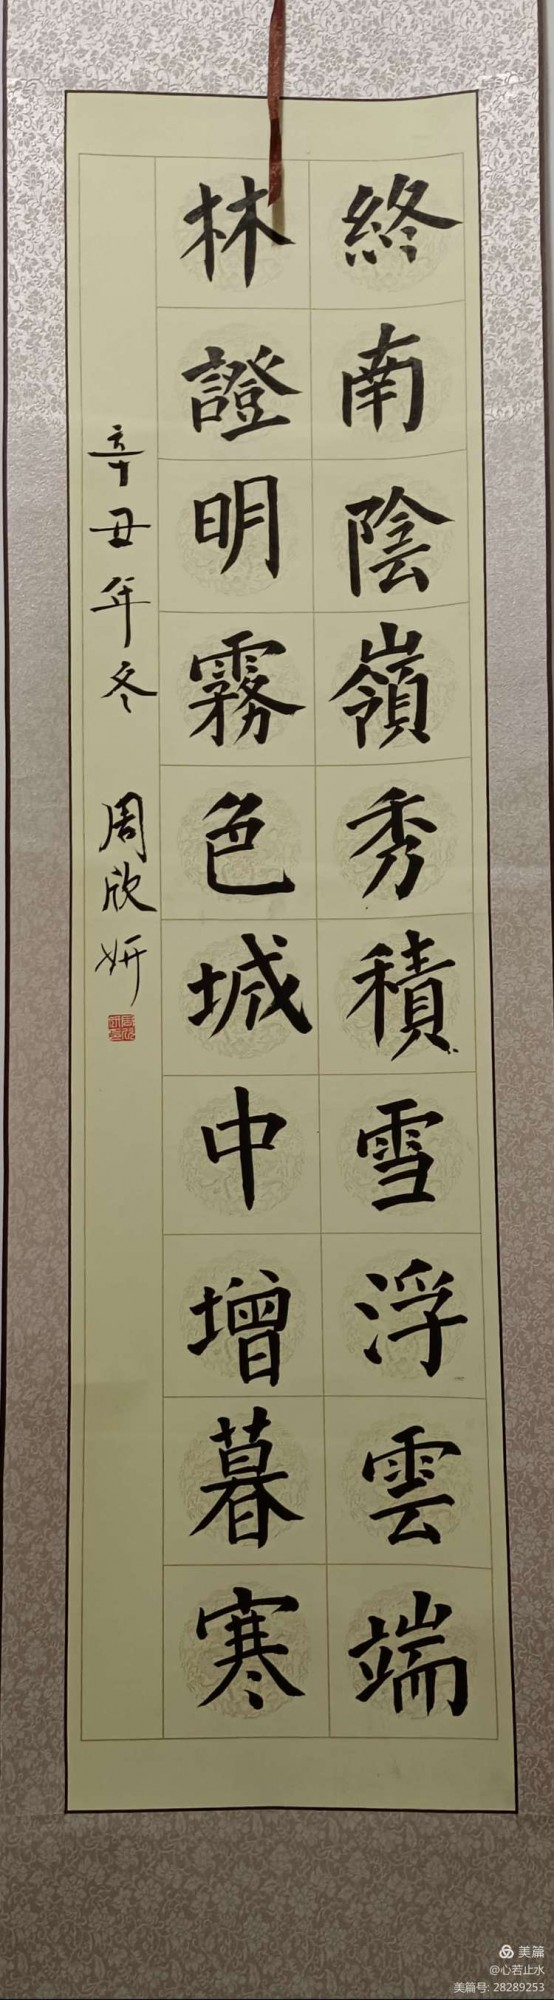 終南陰嶺秀積雪浮雲端
林證明霧色城中增暮寒
辛丑年冬 周欣妍
美篇
@心若止水
美篇号: 28289253